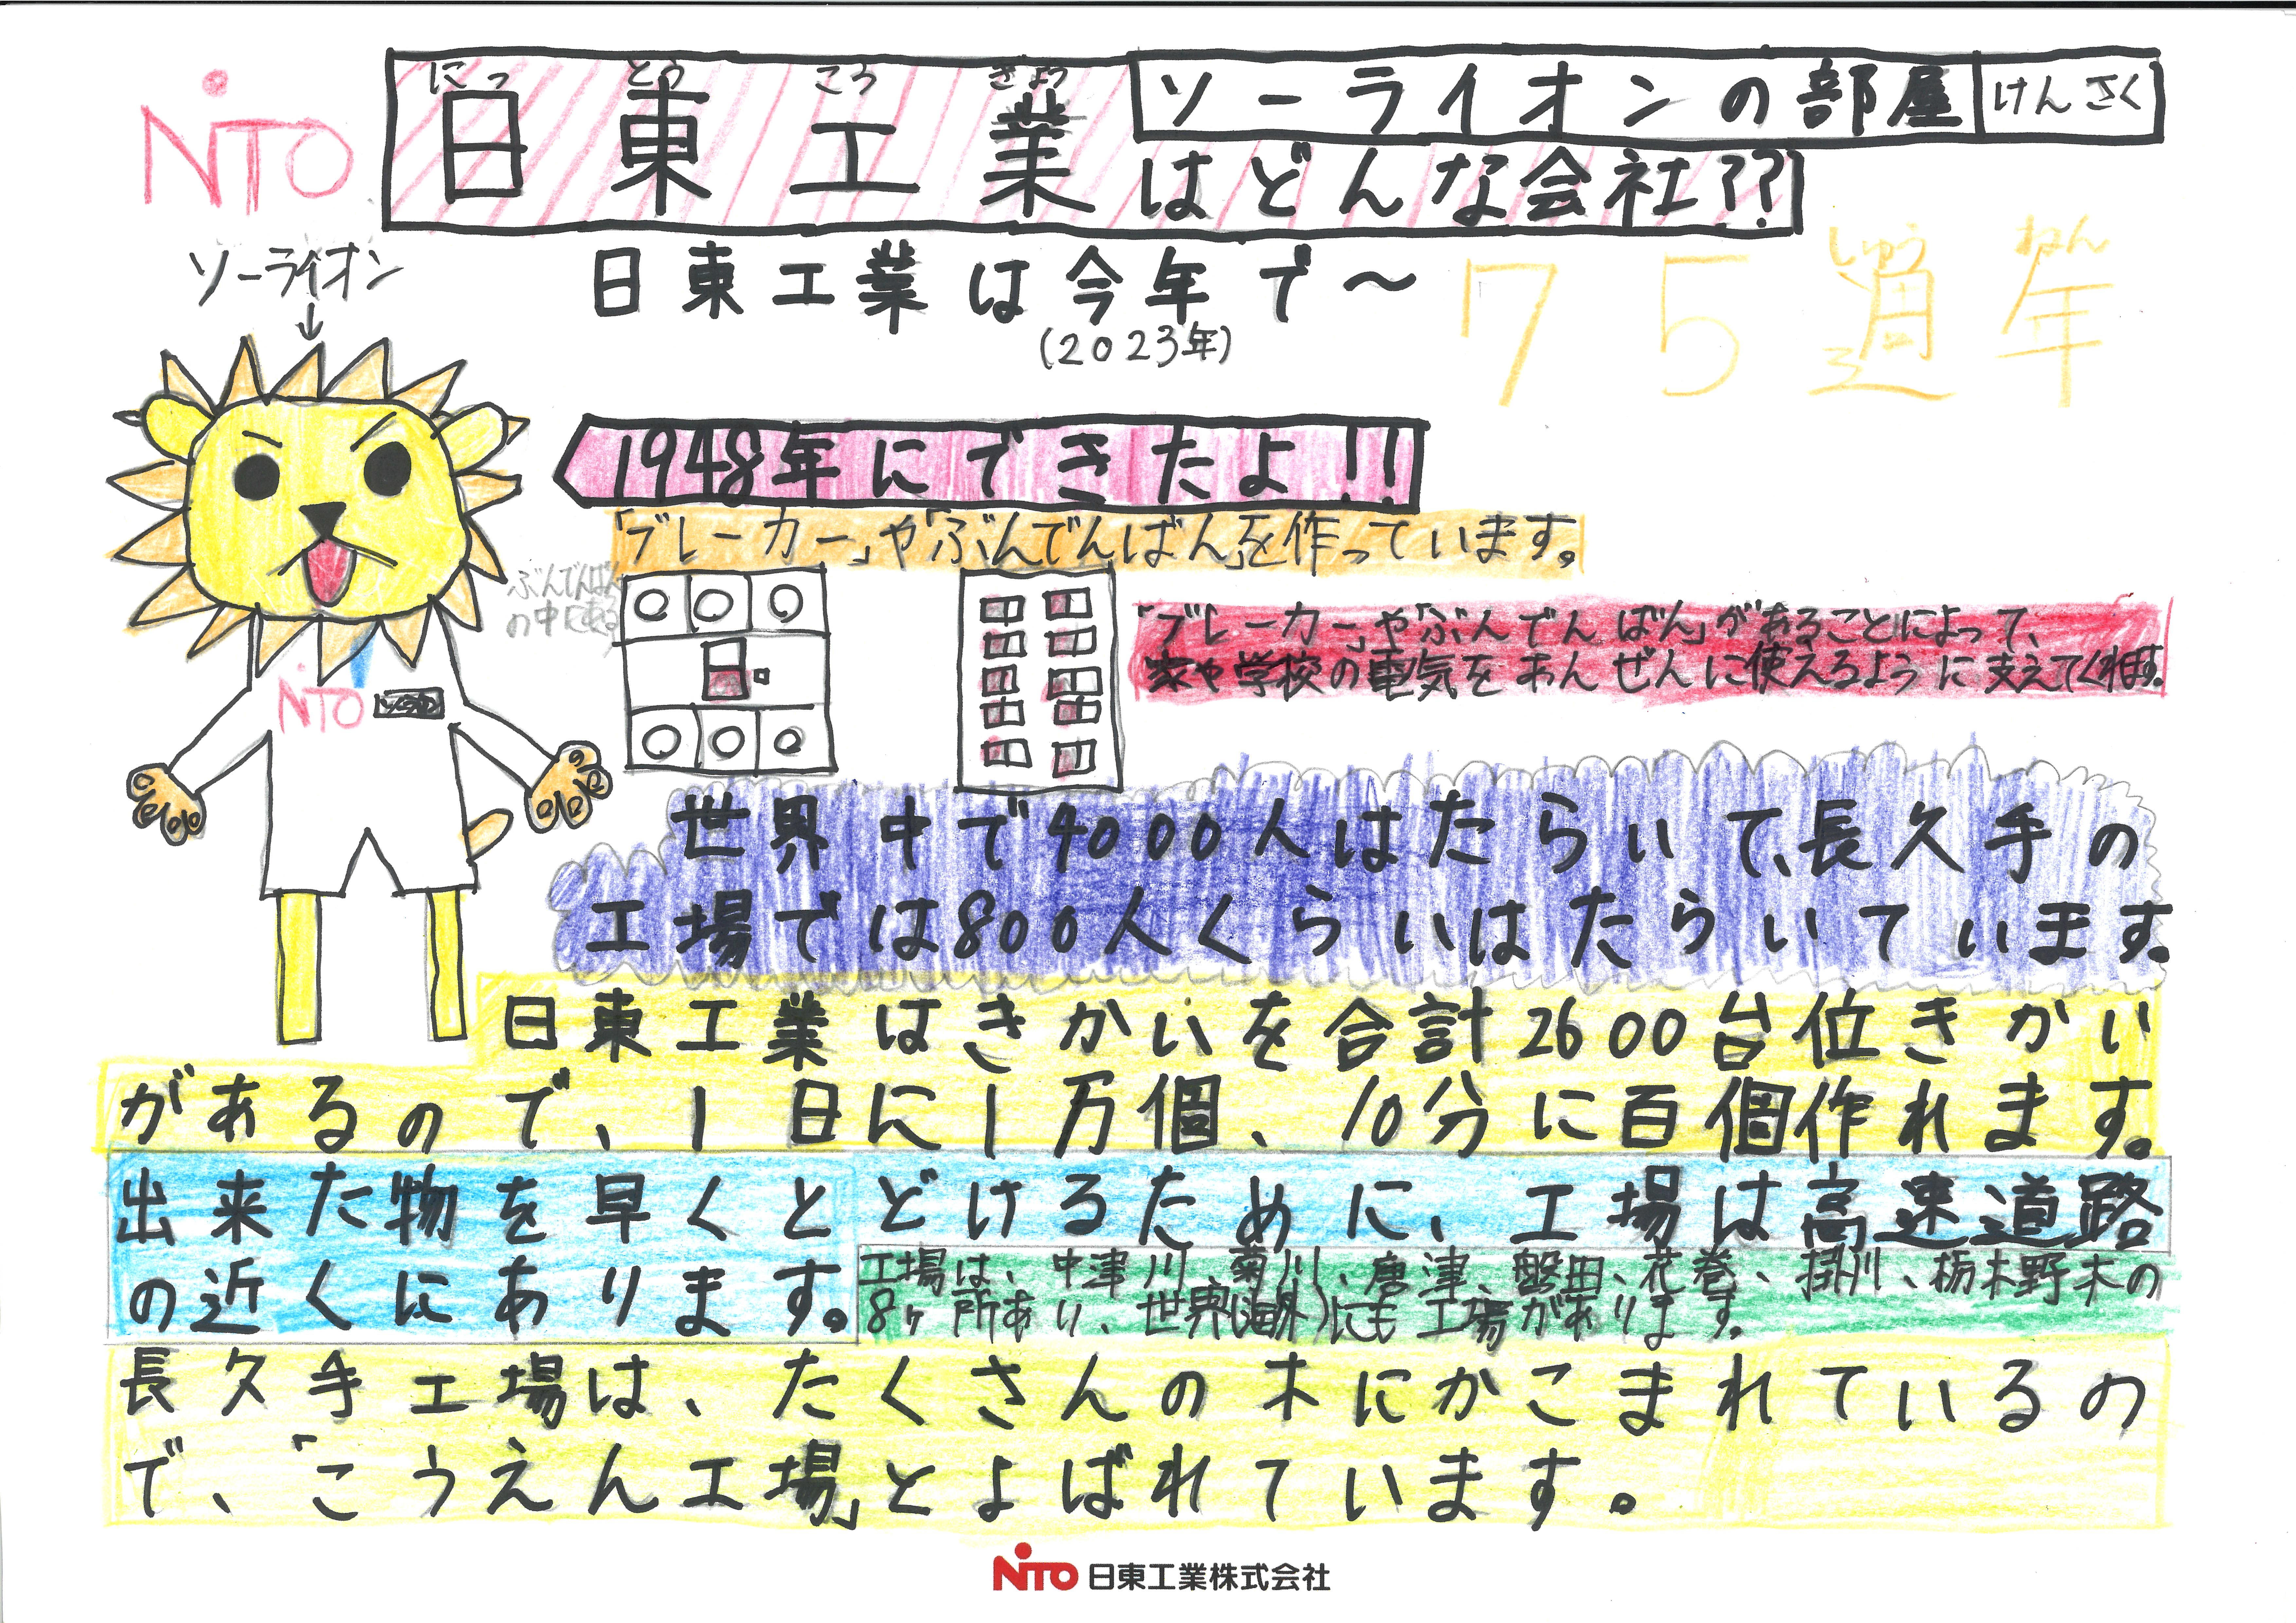 NITO
にっ とう こう ぎょう
日東工業
ソーライオンの部屋 けんさく
はどんな会社??
ソーライオン
↓
日東工業は今年で〜
(2023年)
しゅう ねん
75週年
1948年にできたよ!!
「ブレーカー」や「ぶんでんばん」を作っています。
ぶんでんばん
の中に
「ブレーカー」や「ぶんでんばん」があることによって、
家や学校の電気をあんぜんに使えるように支えてくれます。
NITO
世界中で4000人はたらいて、長久手の
工場では800人くらいはたらいています。
日東工業はきかいを合計2600台位きかい
があるので、1日に1万個、10分に百個作れます。
出来た物を早くとどけるために、工場は高速道路
の近くにあります。
工場は、中津川、菊川、唐津、磐田、花巻、掛川、栃木野木の
8ヶ所あり、世界(海外)にも工場があります。
長久手工場は、たくさんの木にかこまれているの
で、「こうえん工場」とよばれています。
NITO 日東工業株式会社